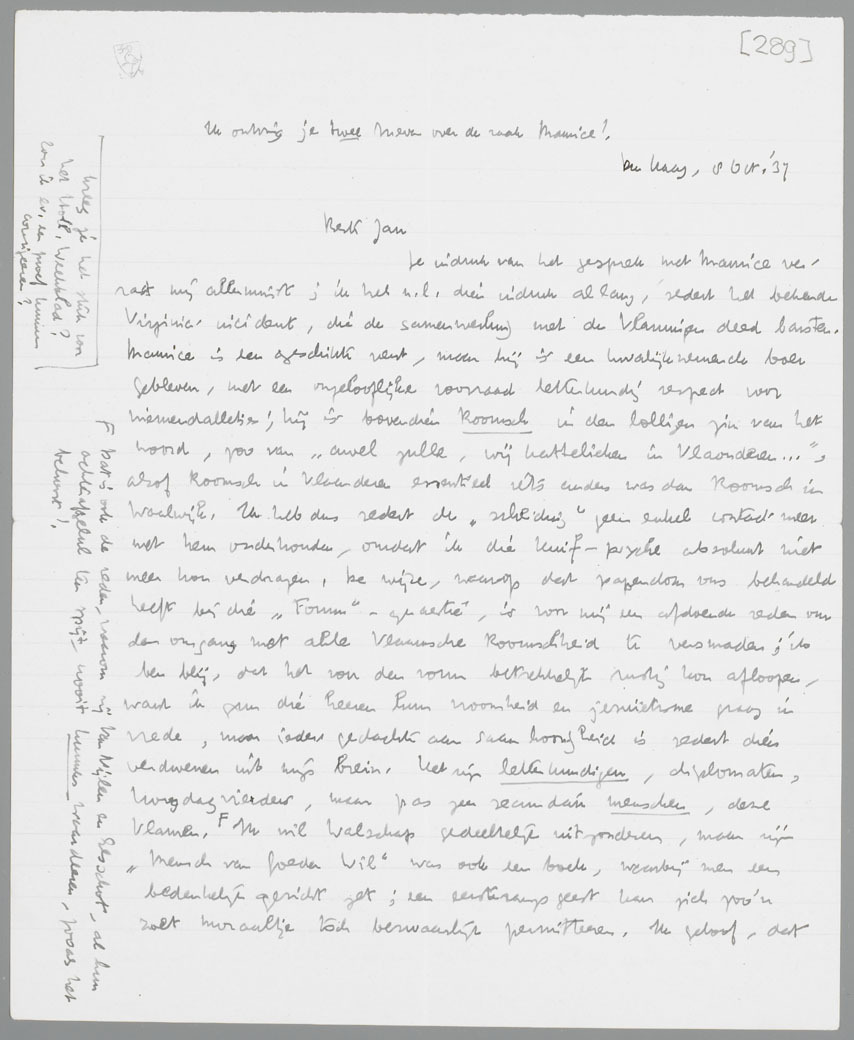 [289]
Ik ontving je twee brieven over de zaak Maurice!
Den Haag, 8 Oct. '37
Beste Jan
Je indruk van het gesprek met Maurice ver-
rast mij allerminst; ik heb n.l. dien indruk al lang, sedert het bekende
Virginia-incident, dat de samenwerking met de Vlamingen deed barsten.
Maurice is een geschikte vent, maar hij is een boer
gebleven, met een ongelooflijke voorraad letterkundig respect voor
niemendalletjes; hij is bovendien Roomsch in den lolligen zin van het
woord, zoo van „awel zulle, wij kattelieken in Vlaonderen...",
alsof Roomsch in Vlaanderen essentieel iets anders was dan Roomsch in
Waalwijk. Ik heb dus sedert de „scheiding" geen enkel contact meer
met hem onderhouden, omdat ik die -psyche absoluut niet
meer kon verdragen. De wijze, waarop dat papendom ons behandeld
heeft bij die „Forum"-quaestie, is voor mij een afdoende reden om
den omgang met alle Vlaamsche Roomschheid te versmaden; ik
ben blij, dat het voor den vorm betrekkelijk rustig kon afloopen,
want ik gun die heeren hun vroomheid en jezuïetisme graag in
vrede, maar iedere gedachte aan saamhoorigheid is sedert dien
verdwenen uit mijn brein. Het zijn letterkundigen, diplomaten,
hoogdagvierders, maar pas zeer secundair menschen, deze
Vlamen. F Ik wil Walschap gedeeltelijk uitzonderen, maar zijn
„Mensch van Goeden Wil" was ook een boek, waarbij men een
bedenkelijk gezicht zet; een eersterangs geest kan zich zoo'n
zoet moraaltje toch bezwaarlijk permitteeren. Ik geloof, dat
Kreeg je het stuk voor
het Holl. Weekblad?
Zou ik ev. een proef kunnen
corrigeeren?
F Dat is ook de reden, waarom wij Van Nijlen en Elsschot, al hun
achterafgelul ten spijt, nooit kunnen waardeeren, zooals het
behoort!